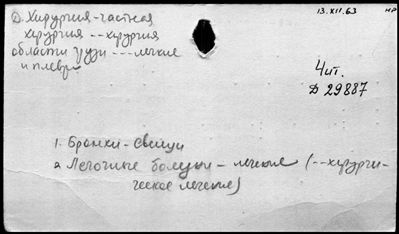 13.XII.63 НР
② Хирургия-частная
хирургия--хирургия
области груди---легкие
и плевра
Чит.
Д 29887
1. Бронхи-свищи
2. Легочные болезни-легкие (--хирурги-
ческое лечение)